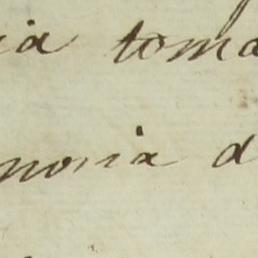 ia toma
noria d